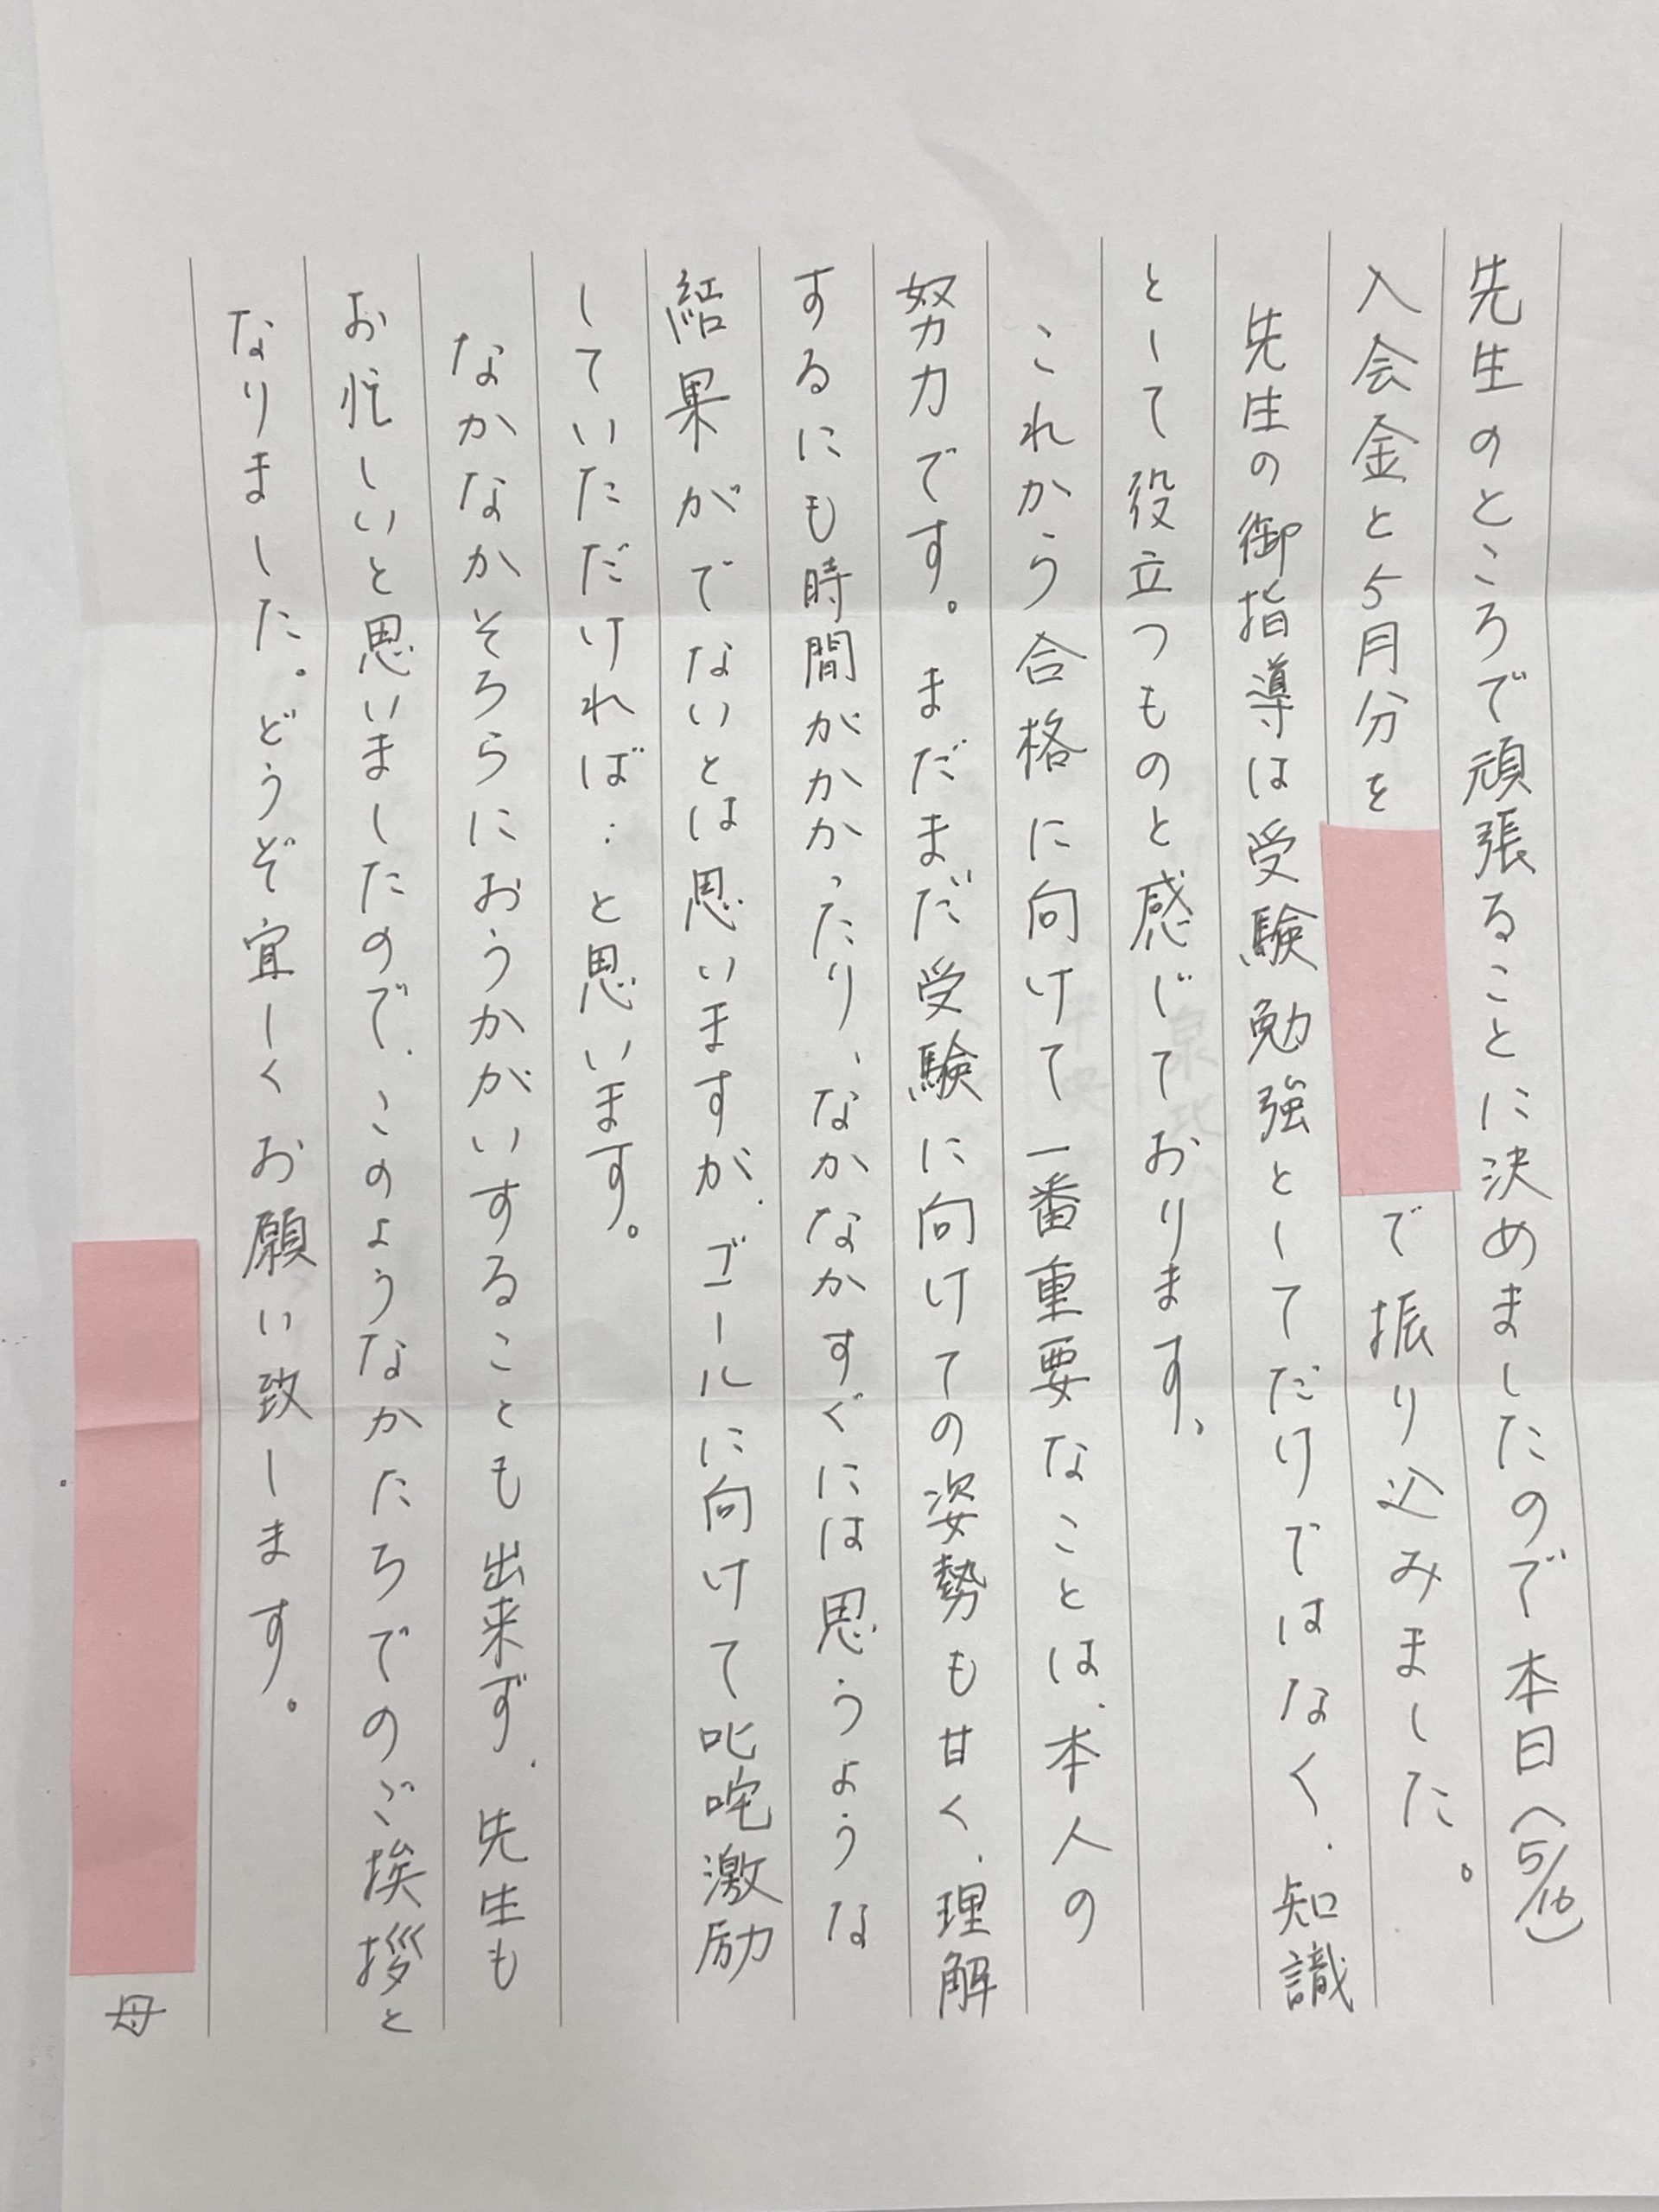 先生のところで頑張ることに決めましたので本日(5/16)
入会金と5月分をで振り込みました。
先生の御指導は受験勉強としてだけではなく、知識
として役立つものと感じております。
これから合格に向けて一番重要なことは、本人の
努力です。まだまだ受験に向けての姿勢も甘く、理解
するにも時間がかかったり、なかなかすぐには思うような
結果がでないとは思いますが、ゴールに向けて叱咤激励
していただければ…と思います。
なかなかそちらにおうかがいすることも出来ず、先生も
お忙しいと思いましたので、このようなかたちでのご挨拶と
なりました。どうぞ宜しくお願い致します。
母